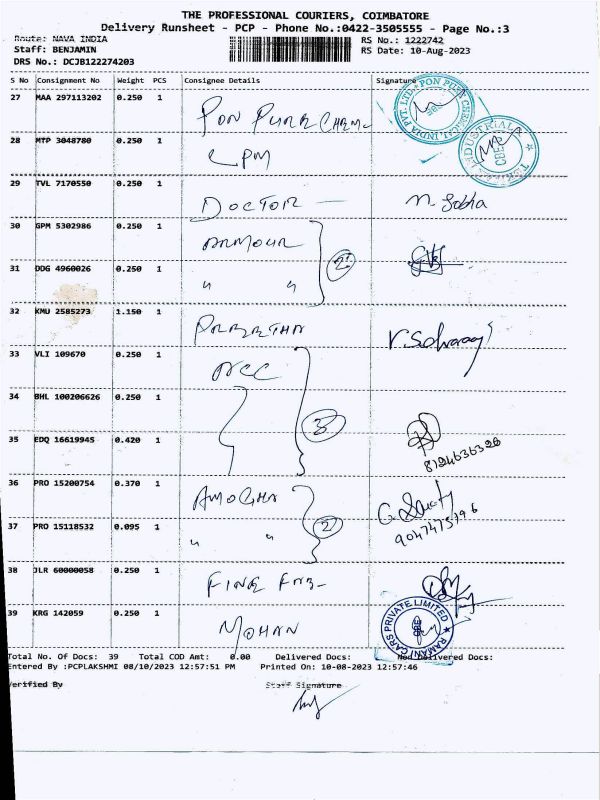 THE PROFESSIONAL COURIERS, COIMBATORE
Delivery Runsheet - PCP - Phone No.:0422-3505555 - Page No.:3
Route: NAVA INDIA RS No.: 1222742
Staff: BENJAMIN RS Date: 10-Aug-2023
DRS No.: DCJB122274203
S No Consignment No Weight PCS Consignee Details Signature
27 MAA 297113202 0.250 1 PON PURE CHEM
PON PURE CHEMICAL INDIA PVT. LTD
28 MTP 3048780 0.250 1 LPM
CBE
29 TVL 7170550 0.250 1 DOCTOR — M. Sobha
30 GPM 5302986 0.250 1 ARMOUR 2
31 DDG 4960026 0.250 1 " "
32 KMU 2585273 1.150 1 PREETHA V. Selvaraj
33 VLI 109670 0.250 1 NCC
34 BHL 100206626 0.250 1 3
35 EDQ 16619945 0.420 1 8124636328
36 PRO 15200754 0.370 1 AMOGHA
37 PRO 15118532 0.095 1 " " 2 9047475796
38 JLR 60000058 0.250 1 FINE FAB-
39 KRG 142059 0.250 1 MOHAN
RAMANI CARS PRIVATE LIMITED
CBE
Total No. Of Docs: 39 Total COD Amt: 0.00 Delivered Docs: Non Delivered Docs:
Entered By :PCPLAKSHMI 08/10/2023 12:57:51 PM Printed On: 10-08-2023 12:57:46
Verified By Staff Signature